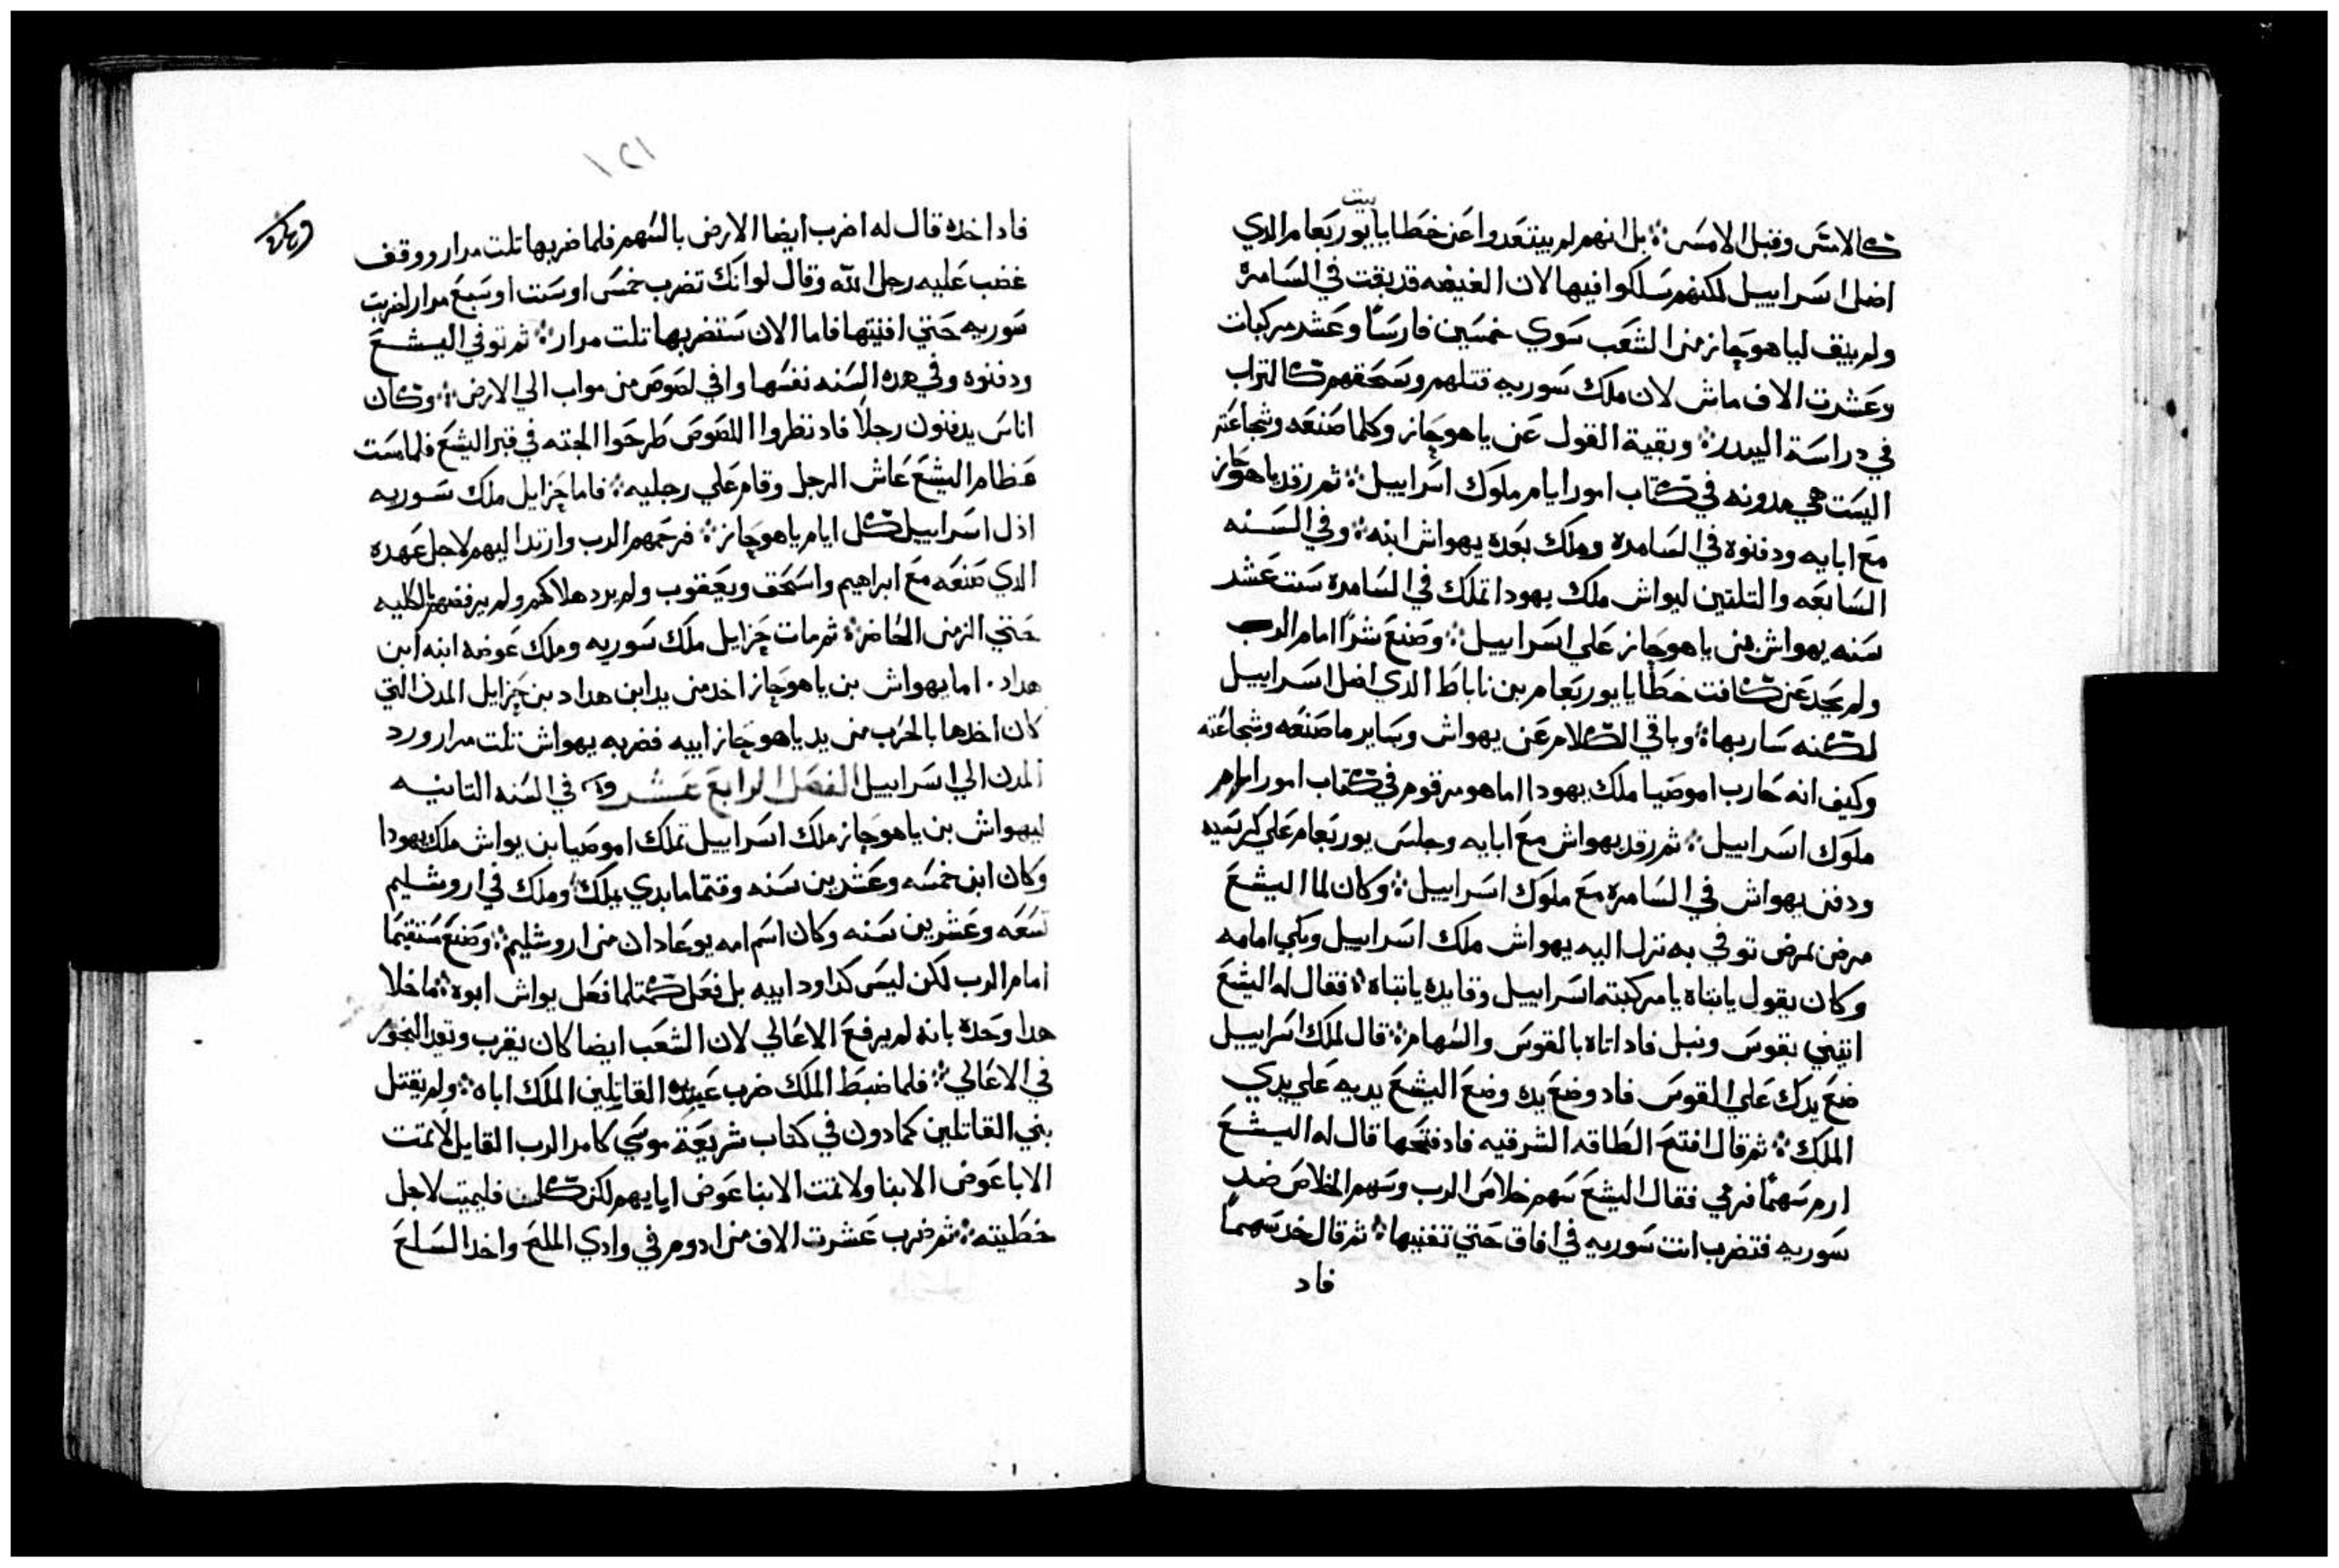 بيت
كالامس وقبل الامس ܀ بل انهم لم يبتعدوا عن خطايا يوربعام الدي
اضل اسراييل لكنهم سلكوا فيها لان الغيضه قد بقت في السامره
ولم يبق لياهوحاز من الشعب سوي خمسين فارسًا وعشر مركبات
وعشرت الاف ماش لان ملك سوريه قتلهم وسحقهم كالتراب
في دراسة البيدر ܀ وبقية القول عن ياهوحاز وكلما صنعه وشجاعته
اليست هي مدونه في كتاب امور ايام ملوك اسراييل ܀ ثم رقد ياهوحاز
مع ابايه ودفنوه في السامره وملك بعده يهواش ابنه ܀ وفي السنه
السابعه والتلتين ليواش ملك يهودا تملك في السامره ست عشر
سنه يهواش بن ياهوحاز علي اسراييل ܀ وصنع شرًا امام الرب
ولم يحد عن كافت خطايا يوربعام بن ناباط الدي اضل اسراييل
لكنه سار بها ܀ وباقي الكلام عن يهواش وساير ما صنعه وشجاعته
وكيف انه حارب اموصيا ملك يهودا اما هو مرقوم في كتاب امور ايام
ملوك اسراييل ܀ ثم رقد يهواش مع ابايه وجلس يوربعام علي كرسيه
ودفن يهواش في السامره مع ملوك اسراييل ܀ وكان لما اليشع
مرض بمرض توفي به نزل اليه يهواش ملك اسراييل وبكي امامه
وكان يقول يا ابتاه يا مركبته اسراييل وقايده يا ابتاه ܀ فقال له اليشع
ايتيني بقوس ونبل فاد اتاه بالقوس والسهام ܀ قال لملك اسراييل
ضع يدك علي القوس فاد وضع يده وضع اليشع يديه علي يدي
الملك ܀ ثم قال افتح الطاقه الشرقيه فاد فتحها قال له اليشع
ارم سهمًا فرمي فقال اليشع سهم خلاص الرب وسهم الخلاص ضد
سوريه فتضرب انت سوريه في افاق حتي تفنيها ܀ ثم قال خد سهمًا
فاد
١٢١
فاد اخده قال له اضرب ايضا الارض بالسهم فلما ضربها تلت مرار ووقف
غضب عليه رجل الله وقال لو انك تضرب خمس او ست او سبع مرار لضربت
سوريه حتي افنيتها فاما الان ستضربها تلت مرار ܀ ثم توفي اليشع
ودفنوه وفي هده السنه نفسها وافي لصوص من مواب الي الارض ܀ وكان
اناس يدفنون رجلًا فاد نظروا اللصوص طرحوا الجته في قبر اليشع فلما مست
عظام اليشع عاش الرجل وقام علي رجليه ܀ فاما حزايل ملك سوريه
ادل اسراييل كل ايام ياهوحاز ܀ فرحمهم الرب وارتد اليهم لاجل عهده
الدي صنعه مع ابراهيم واسحق ويعقوب ولم يرد هلاكهم ولم يرفضهم بالكليه
حتي الزمن الحاضر ܀ ثم مات حزايل ملك سوريه وملك عوضه ابنه ابن
هداد . اما يهواش بن ياهوحاز اخد من يد ابن هداد بن حزايل المدن التي
كان اخدها بالحرب من يد ياهوحاز ابيه فضربه يهواش تلت مرار ورد
المدن الي اسراييل الفصل الرابع عشر في السنه التانيه
ليهواش بن ياهوحاز ملك اسراييل تملك اموصيا بن يواش ملك يهودا
وكان ابن خمسه وعشرين سنه وقتما ما بدي يملك وملك في اروشليم
تسعه وعشرين سنه وكان اسم امه يوعادان من اروشليم ܀ وصنع مستقيمًا
امام الرب لكن ليس كداود ابيه بل فعل كمتلما فعل يواش ابوه ܀ ما خلا
هدا وحده بانه لم يرفع الاعالي لان الشعب ايضا كان يقرب ويقد البخور
في الاعالي ܀ فلما ضبط الملك ضرب عبيده القاتلين الملك اباه ܀ ولم يقتل
بني القاتلين كما دون في كتاب شريعة موسي كامر الرب القايل لا تمت
الابا عوض الابنا ولا تمت الابنا عوض ابايهم لكن كل فليميت لاجل
خطيته ܀ ثم ضرب عشرت الاف من ادوم في وادي الملح واخد السلع